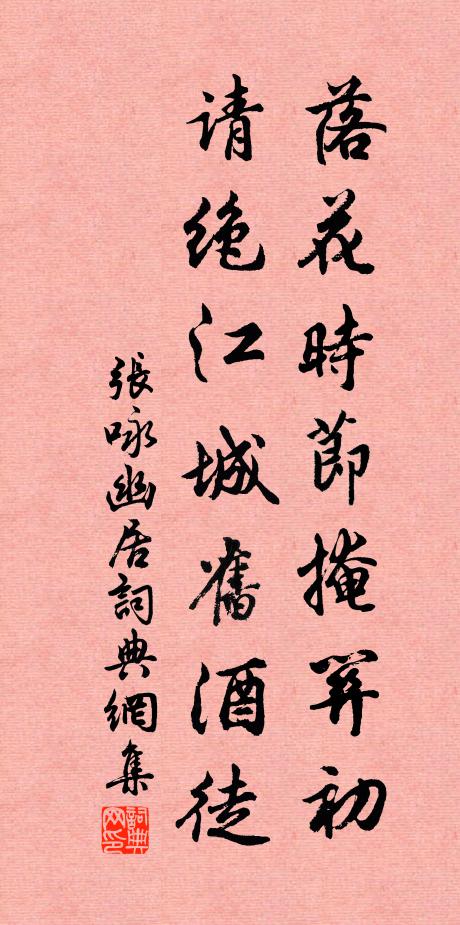 落花時節掩關初
請絶江城舊酒徒
張咏幽居詞典網集
詞典网印